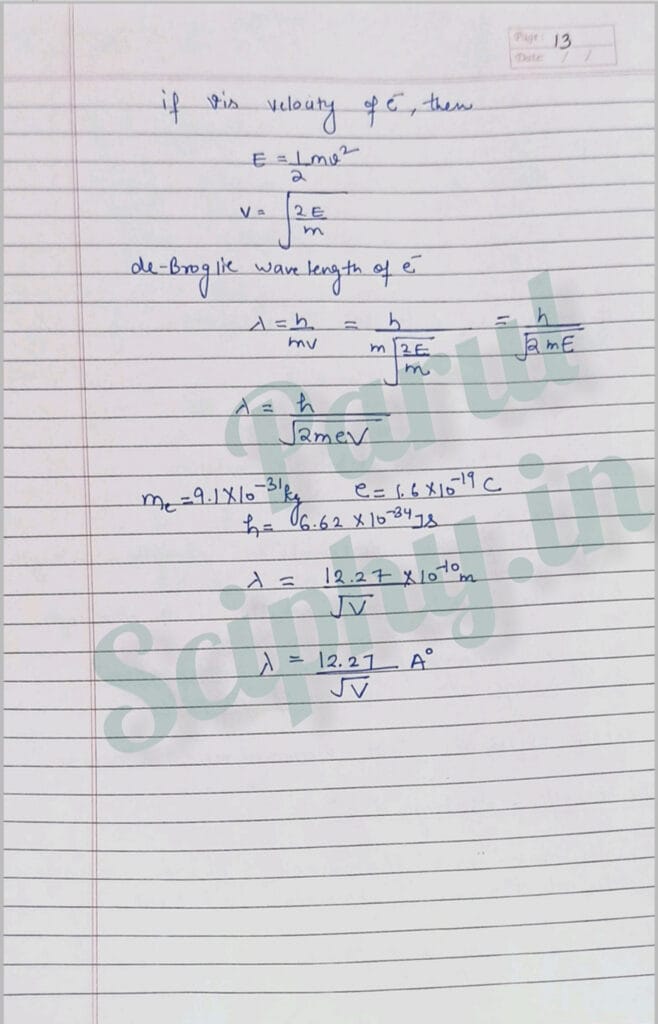 Page: 13
Date: / /
if v is velocity of e⁻, then
E = 1/2 mv²
v = √(2E/m)
de-Broglie wave length of e⁻
λ = h/mv = h/(m√(2E/m)) = h/√(2mE)
λ = h/√(2meV)
me = 9.1×10⁻³¹ kg e = 1.6×10⁻¹⁹ C
h = 6.62×10⁻³⁴ Js
λ = 12.27/√V ×10⁻¹⁰ m
λ = 12.27/√V A°
Parul
Sciphy.in